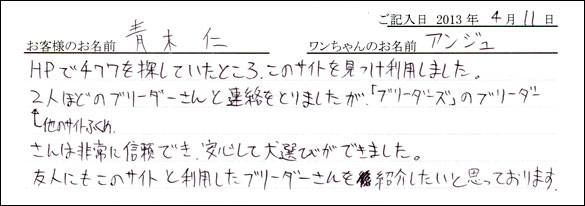 ご記入日 2013 年 4 月 11 日
お客様のお名前 青木 仁 ワンちゃんのお名前 アンジュ
HPでチワワを探していたところ、このサイトを見つけ利用しました。
2人ほどのブリーダーさんと連絡をとりましたが、「ブリーダーズ」のブリーダー
他のサイトふくめ
さんは非常に信頼でき、安心して犬選びができました。
友人にもこのサイトと利用したブリーダーさんを紹介したいと思っております。